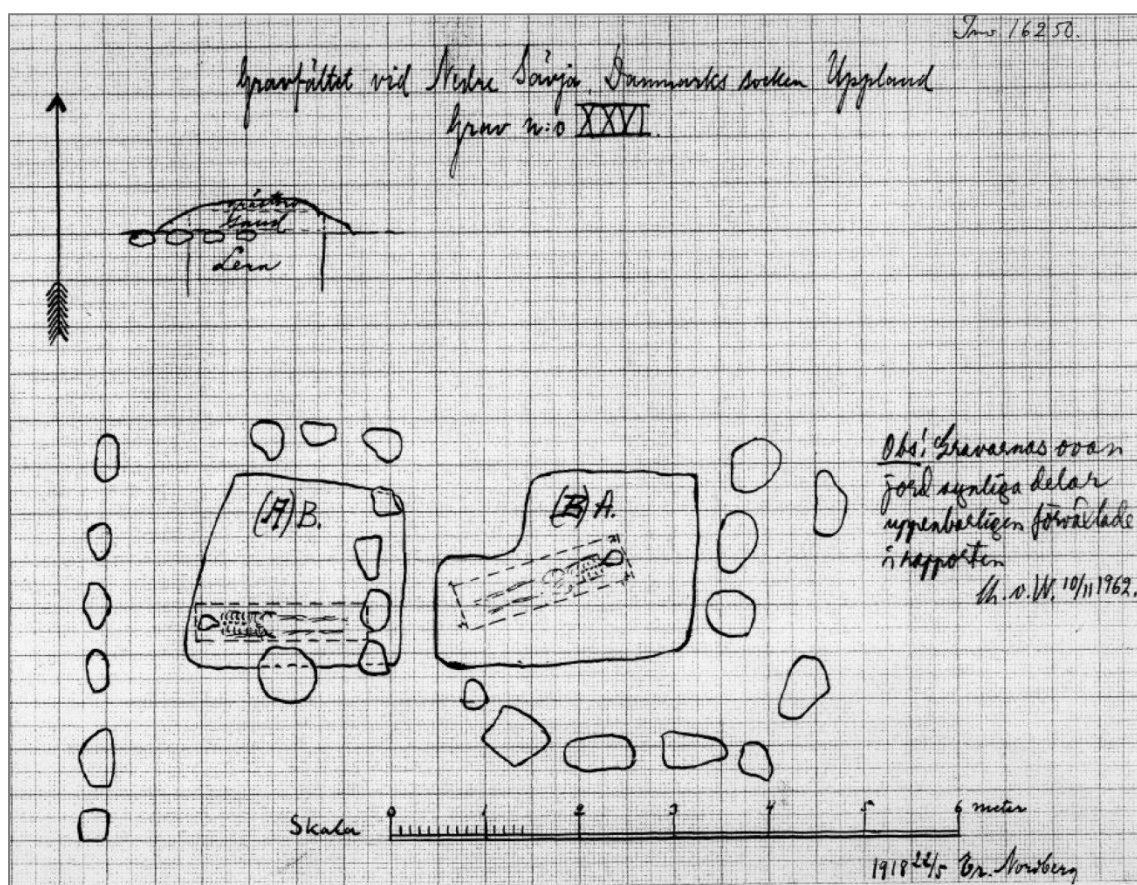 Inv. 16250.
Gravfältet vid Nedre Sävja, Danmarks socken Uppland
Grav n:o XXVI.
Sand
Lera
(A) B.
(B) A.
Obs! Gravarnas ovan
jord synliga delar
uppenbarligen förväxlade
i rapporten
10/11 1962.
0 1 2 3 4 5 6 meter
Skala
1918 22/5 Er. Nordberg